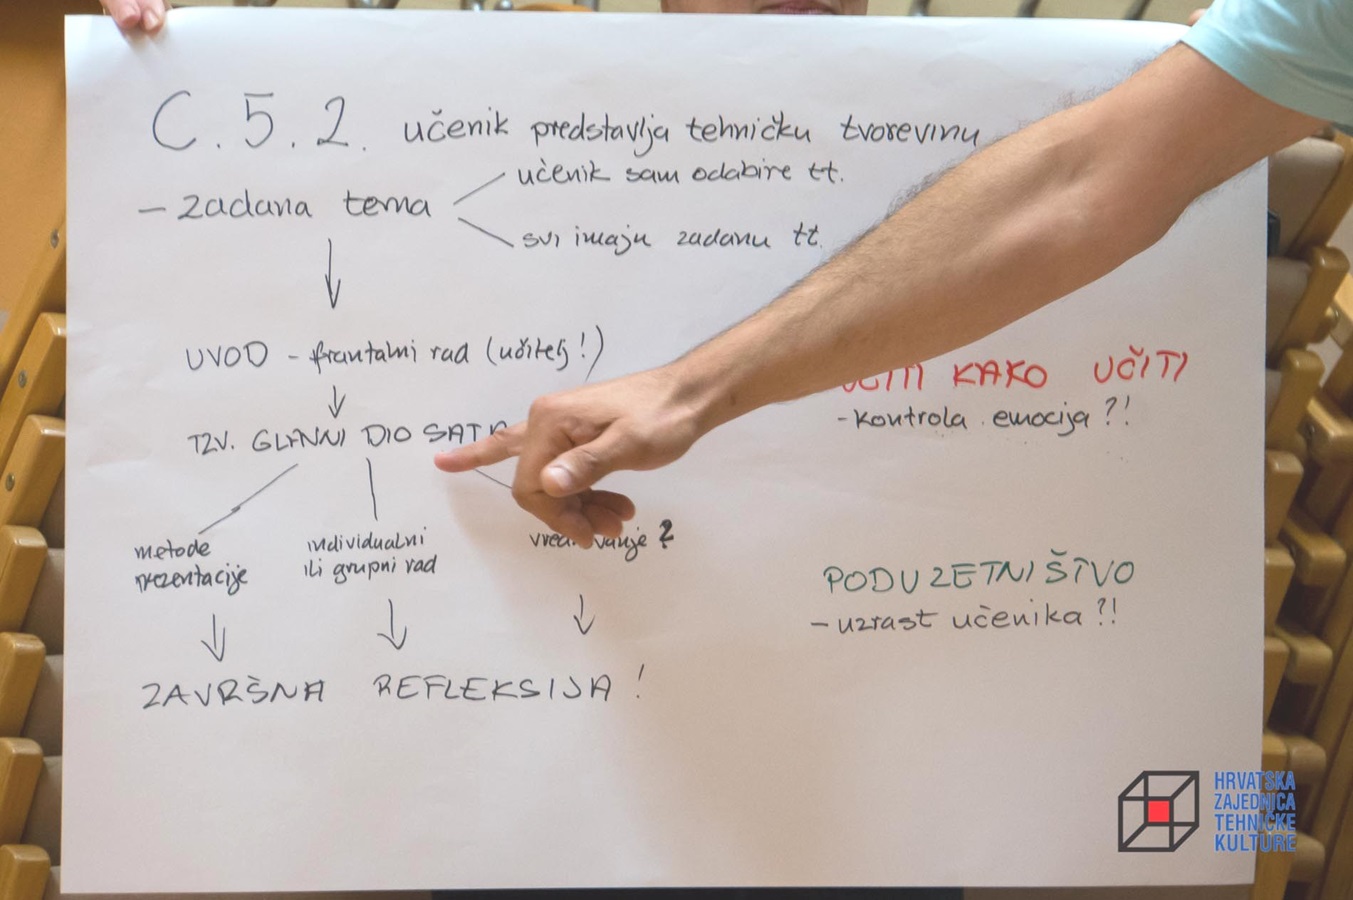 C.5.2. učenik predstavlja tehničku tvorevinu
- zadana tema
učenik sam odabire tt.
svi imaju zadanu tt.
UVOD - frontalni rad (učitelj!)
TZV. GLAVNI DIO SATA
metode
prezentacije
individualni
ili grupni rad
?
ZAVRŠNA REFLEKSIJA!
UČITI KAKO UČITI
- kontrola emocija?!
PODUZETNIŠTVO
- uzrast učenika?!
HRVATSKA
ZAJEDNICA
TEHNIČKE
KULTURE